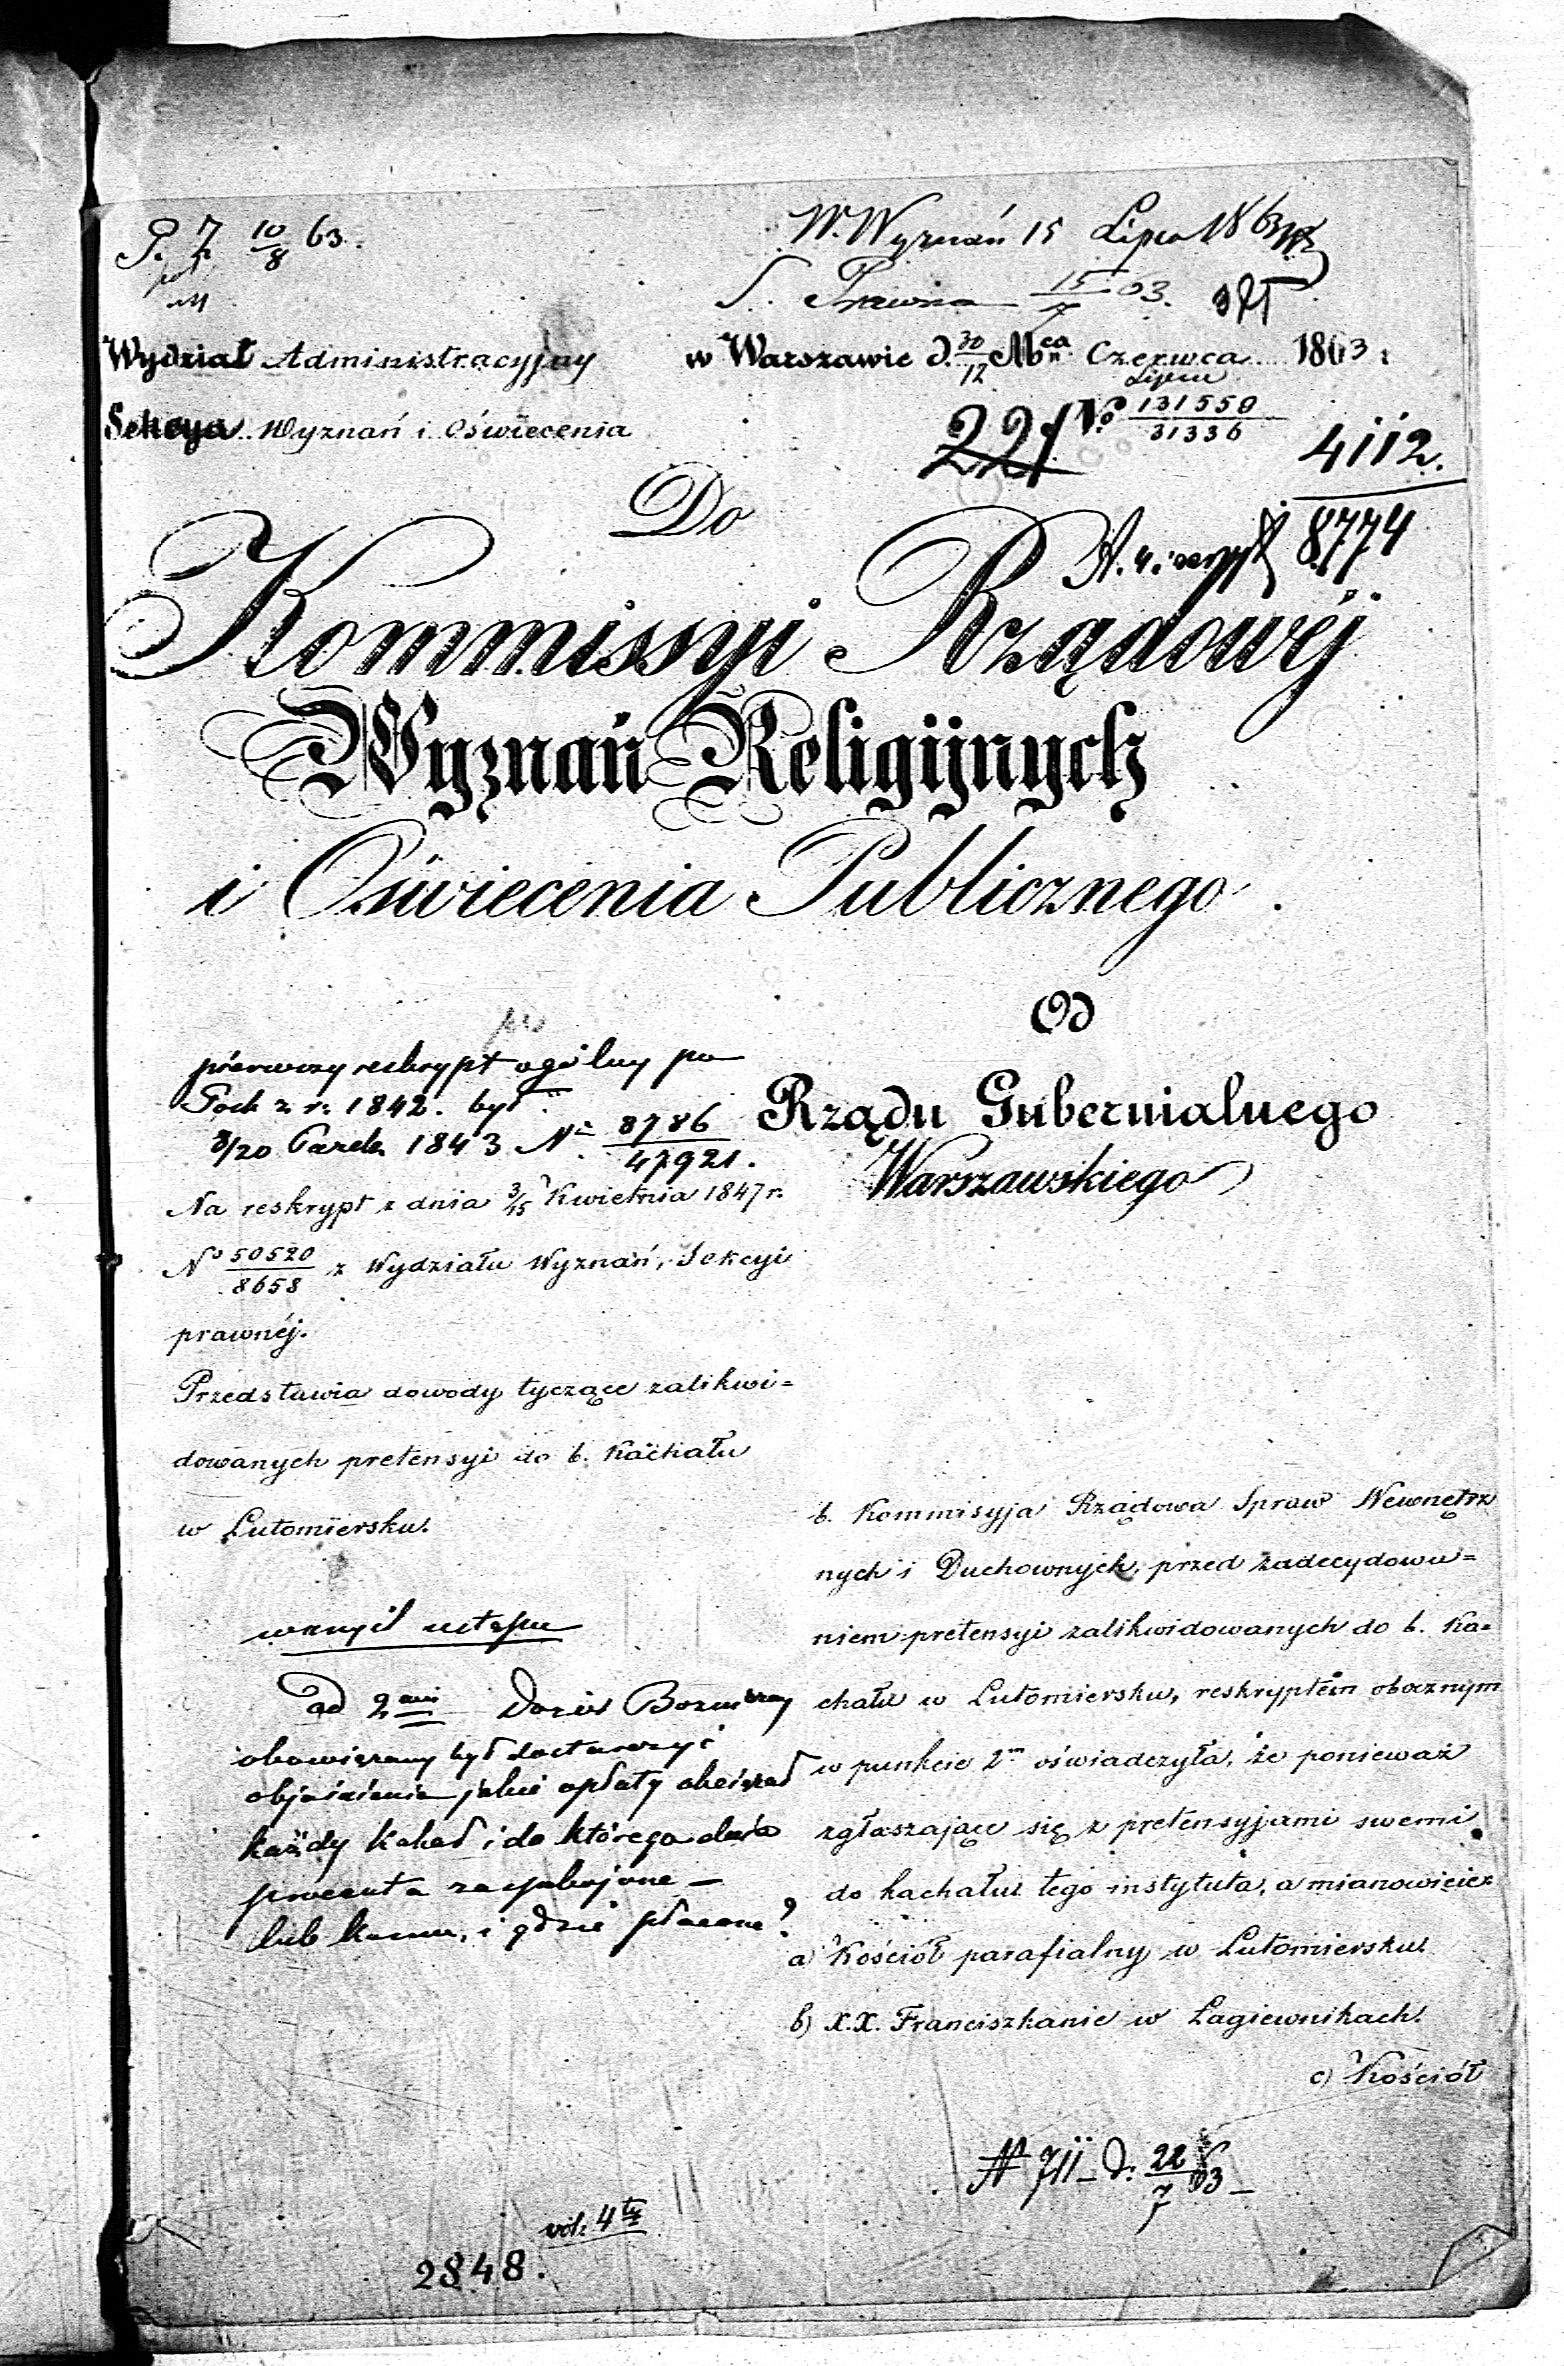 P. 7. 10/8 63.
W. Wyznań 15 Lipca 1863
S. Prawna 15/7 63.
Wydział Administracyjny w Warszawie d. 30/12 Mca Czerwca/Lipca 1863 r.
Sekcya Wyznań i Oświecenia
221 No 131550/31336
4112.
8774
Do
Kommissyi Rządowéj
Wyznań Religijnych
i Oświecenia Publicznego
Od
Rządu Gubernialnego
Warszawskiego
pierwszy reskrypt ogólny po
z r. 1842. był
8/20 1843 No 8786/47921.
Na reskrypt z dnia 3/15 Kwietnia 1847 r.
No 50520/8658 z Wydziału Wyznań, Sekcyi
prawnéj.
Przedstawia dowody tyczące zalikwi=
dowanych pretensyi do b. Kachału
w Lutomiersku.
wszyil ustępu
ad 2
obowiązany był dostarczyć
objaśnienia jakie opłaty
każdy kahał i do którego
procenta zaspokojone –
lub komu, i gdzie płacone?
b. Kommisyja Rządowa Spraw Wewnętrz
nych i Duchownych, przed zadecydowa=
niem pretensyi zalikwidowanych do b. Ka=
chału w Lutomiersku, reskryptem obocznym
w punkcie 2m oświadczyła, że ponieważ
zgłaszające się z pretensyjami swemi
do kachału tego instytuta, a mianowicie:
a) Kościół parafialny w Lutomiersku.
b) X.X. Franciszkanie w Łagiewnikach.
c) Kościół
N 711 – d: 22/7 63 –
vol: 4ty
2848.